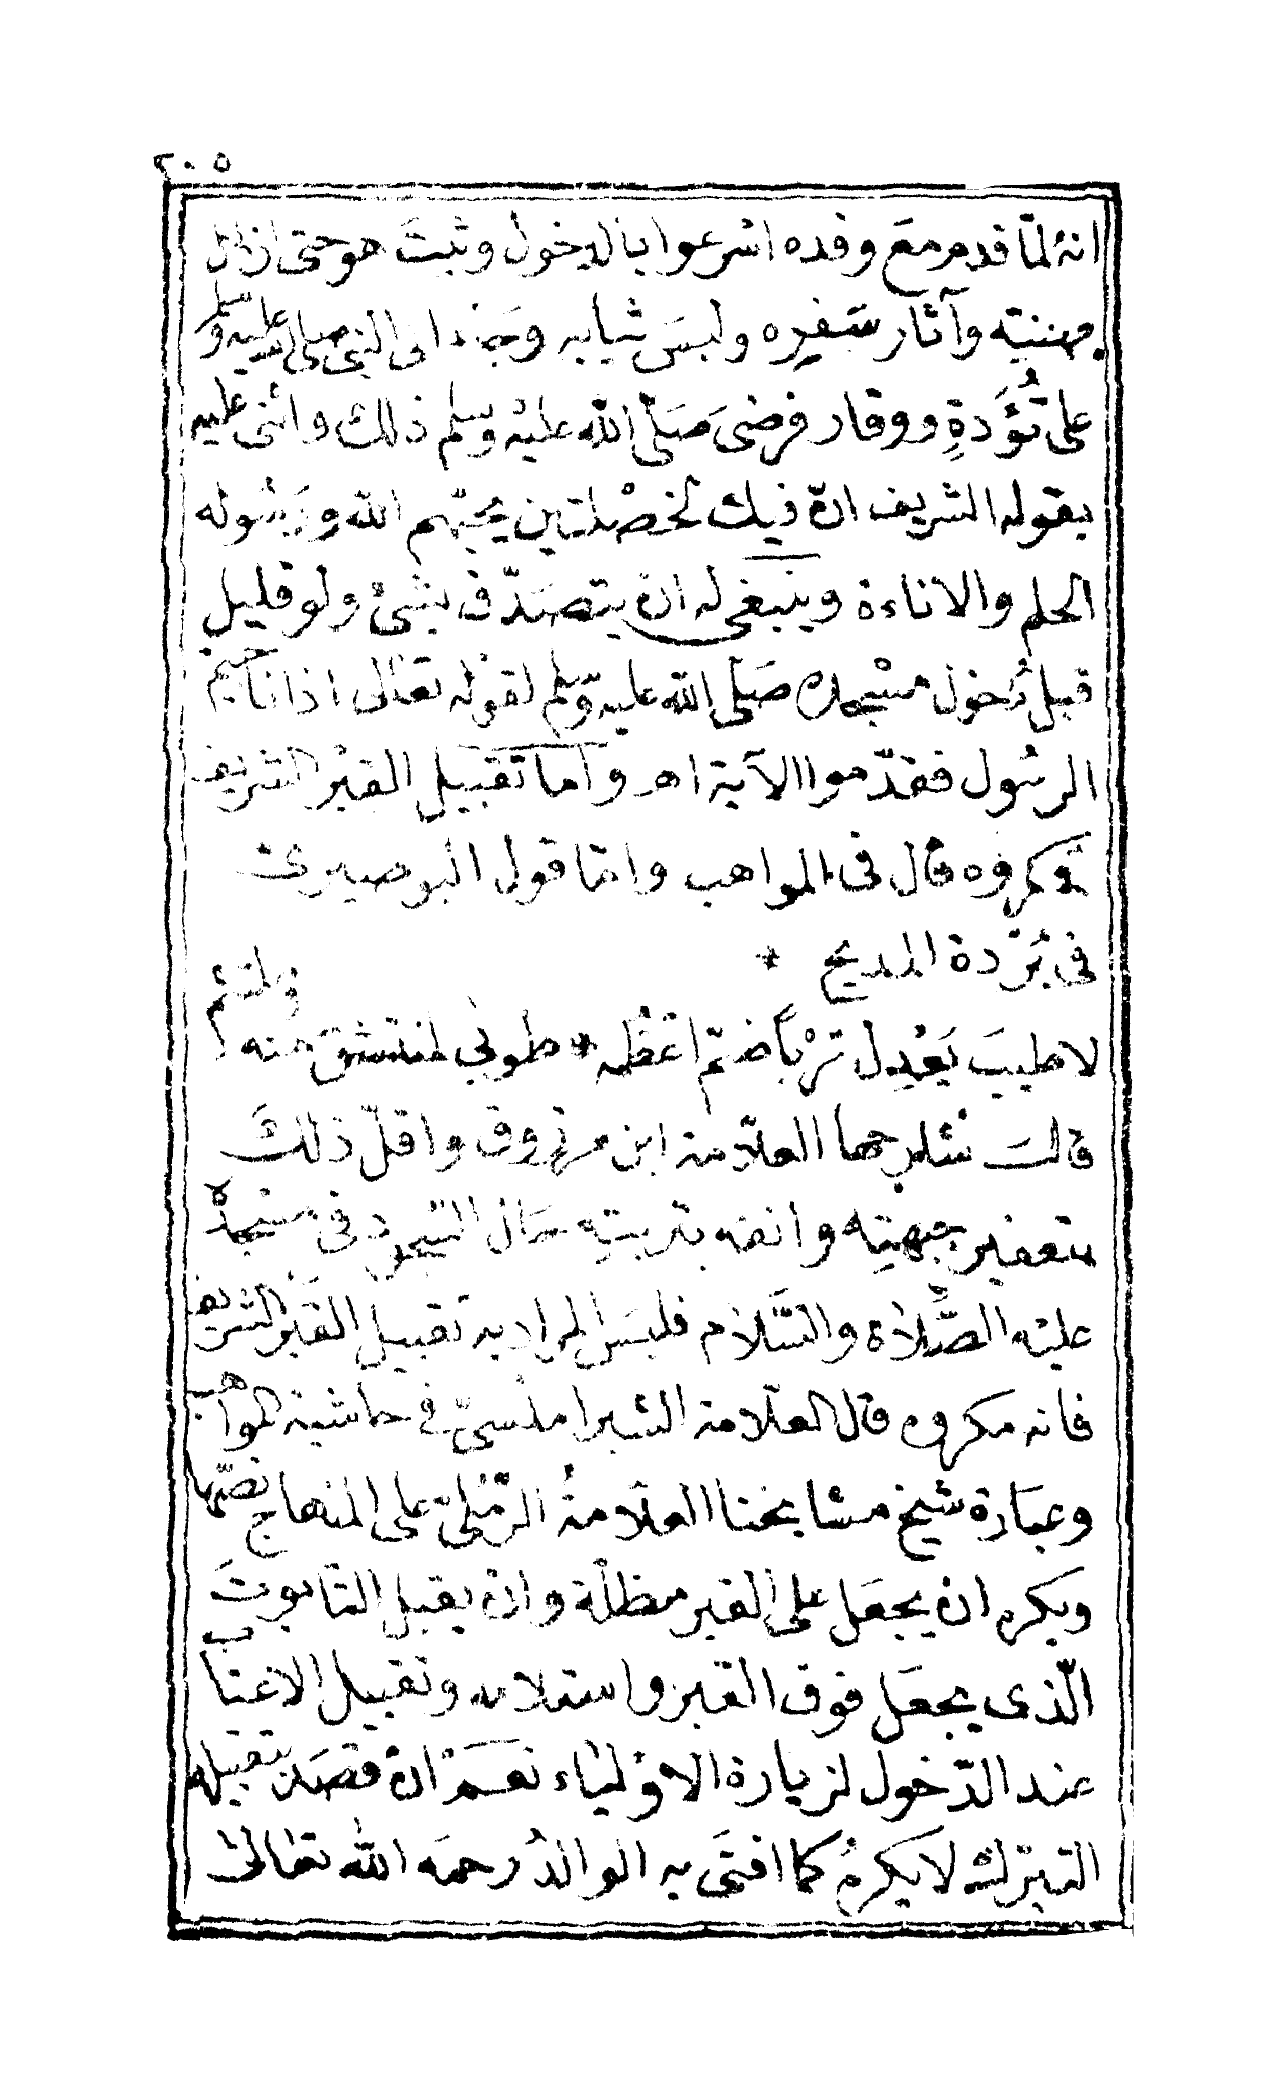 ٢٠٥
انهُ لمّا قدم مع وفده اسرعوا بالدخول وثبتَ هو حتى ازال
مهنيته وآثار سَفره ولبسَ ثيابه وجَاء الى النبى صلى الله عليه وسلم
على تُؤَدةِ ووقار فرضىَ صَلّى الله عليْه وسلم ذلك واثنى عليه
بقوله الشريف انّ فيك لخصْلتين يحبّهم الله ورَسُوله
الحلم والاناءة وينبغى له انْ يتصَدّق بشئ ولو قليل
قبل دُخول مسْجده صَلى الله عليه وسّلم لقوْله تعَالى اذا ناجيتم
الرسُول فقدّموا الآية اهـ وامّا تقبيل القبْر الشريف
فمكروه قال فى المواهب وامّا قول البوصيرى
فى بُرْدة المديح *
لا طيبَ يَعْدِل ترْبًا ضمّ اعَظُمه * طوبى لمنتشق منه وملتثم
قالَ شارحها العلّامة ابن مرزوق واقلّ ذلكَ
بتعفير جبهتِه وانفه بتربتِه حَال السُجود فى مسْجده
عليْه الصَّلاة والسَّلام فليسَ المراد به تقبيل القبْر الشريف
فانه مكروه قال العلّامة الشبراملسىّ فى حاشية المواهب
وعبَارة شيخ مشايخنا العلّامةُ الرّمْلىّ على المنهاج نصّها
ويكره انْ يجعَل على القبر مظلّة وانْ يقبل التابوتَ
الّذى يجعَل فوق القبر واستلامه وتقبيل الاعتاب
عند الدّخول لزيارة الاوْلياء نعَمْ انْ قصَد بتقبيله
التبرّك لا يكرهُ كما افتَى به الوالدُ رحمَه الله تعَالىٰ